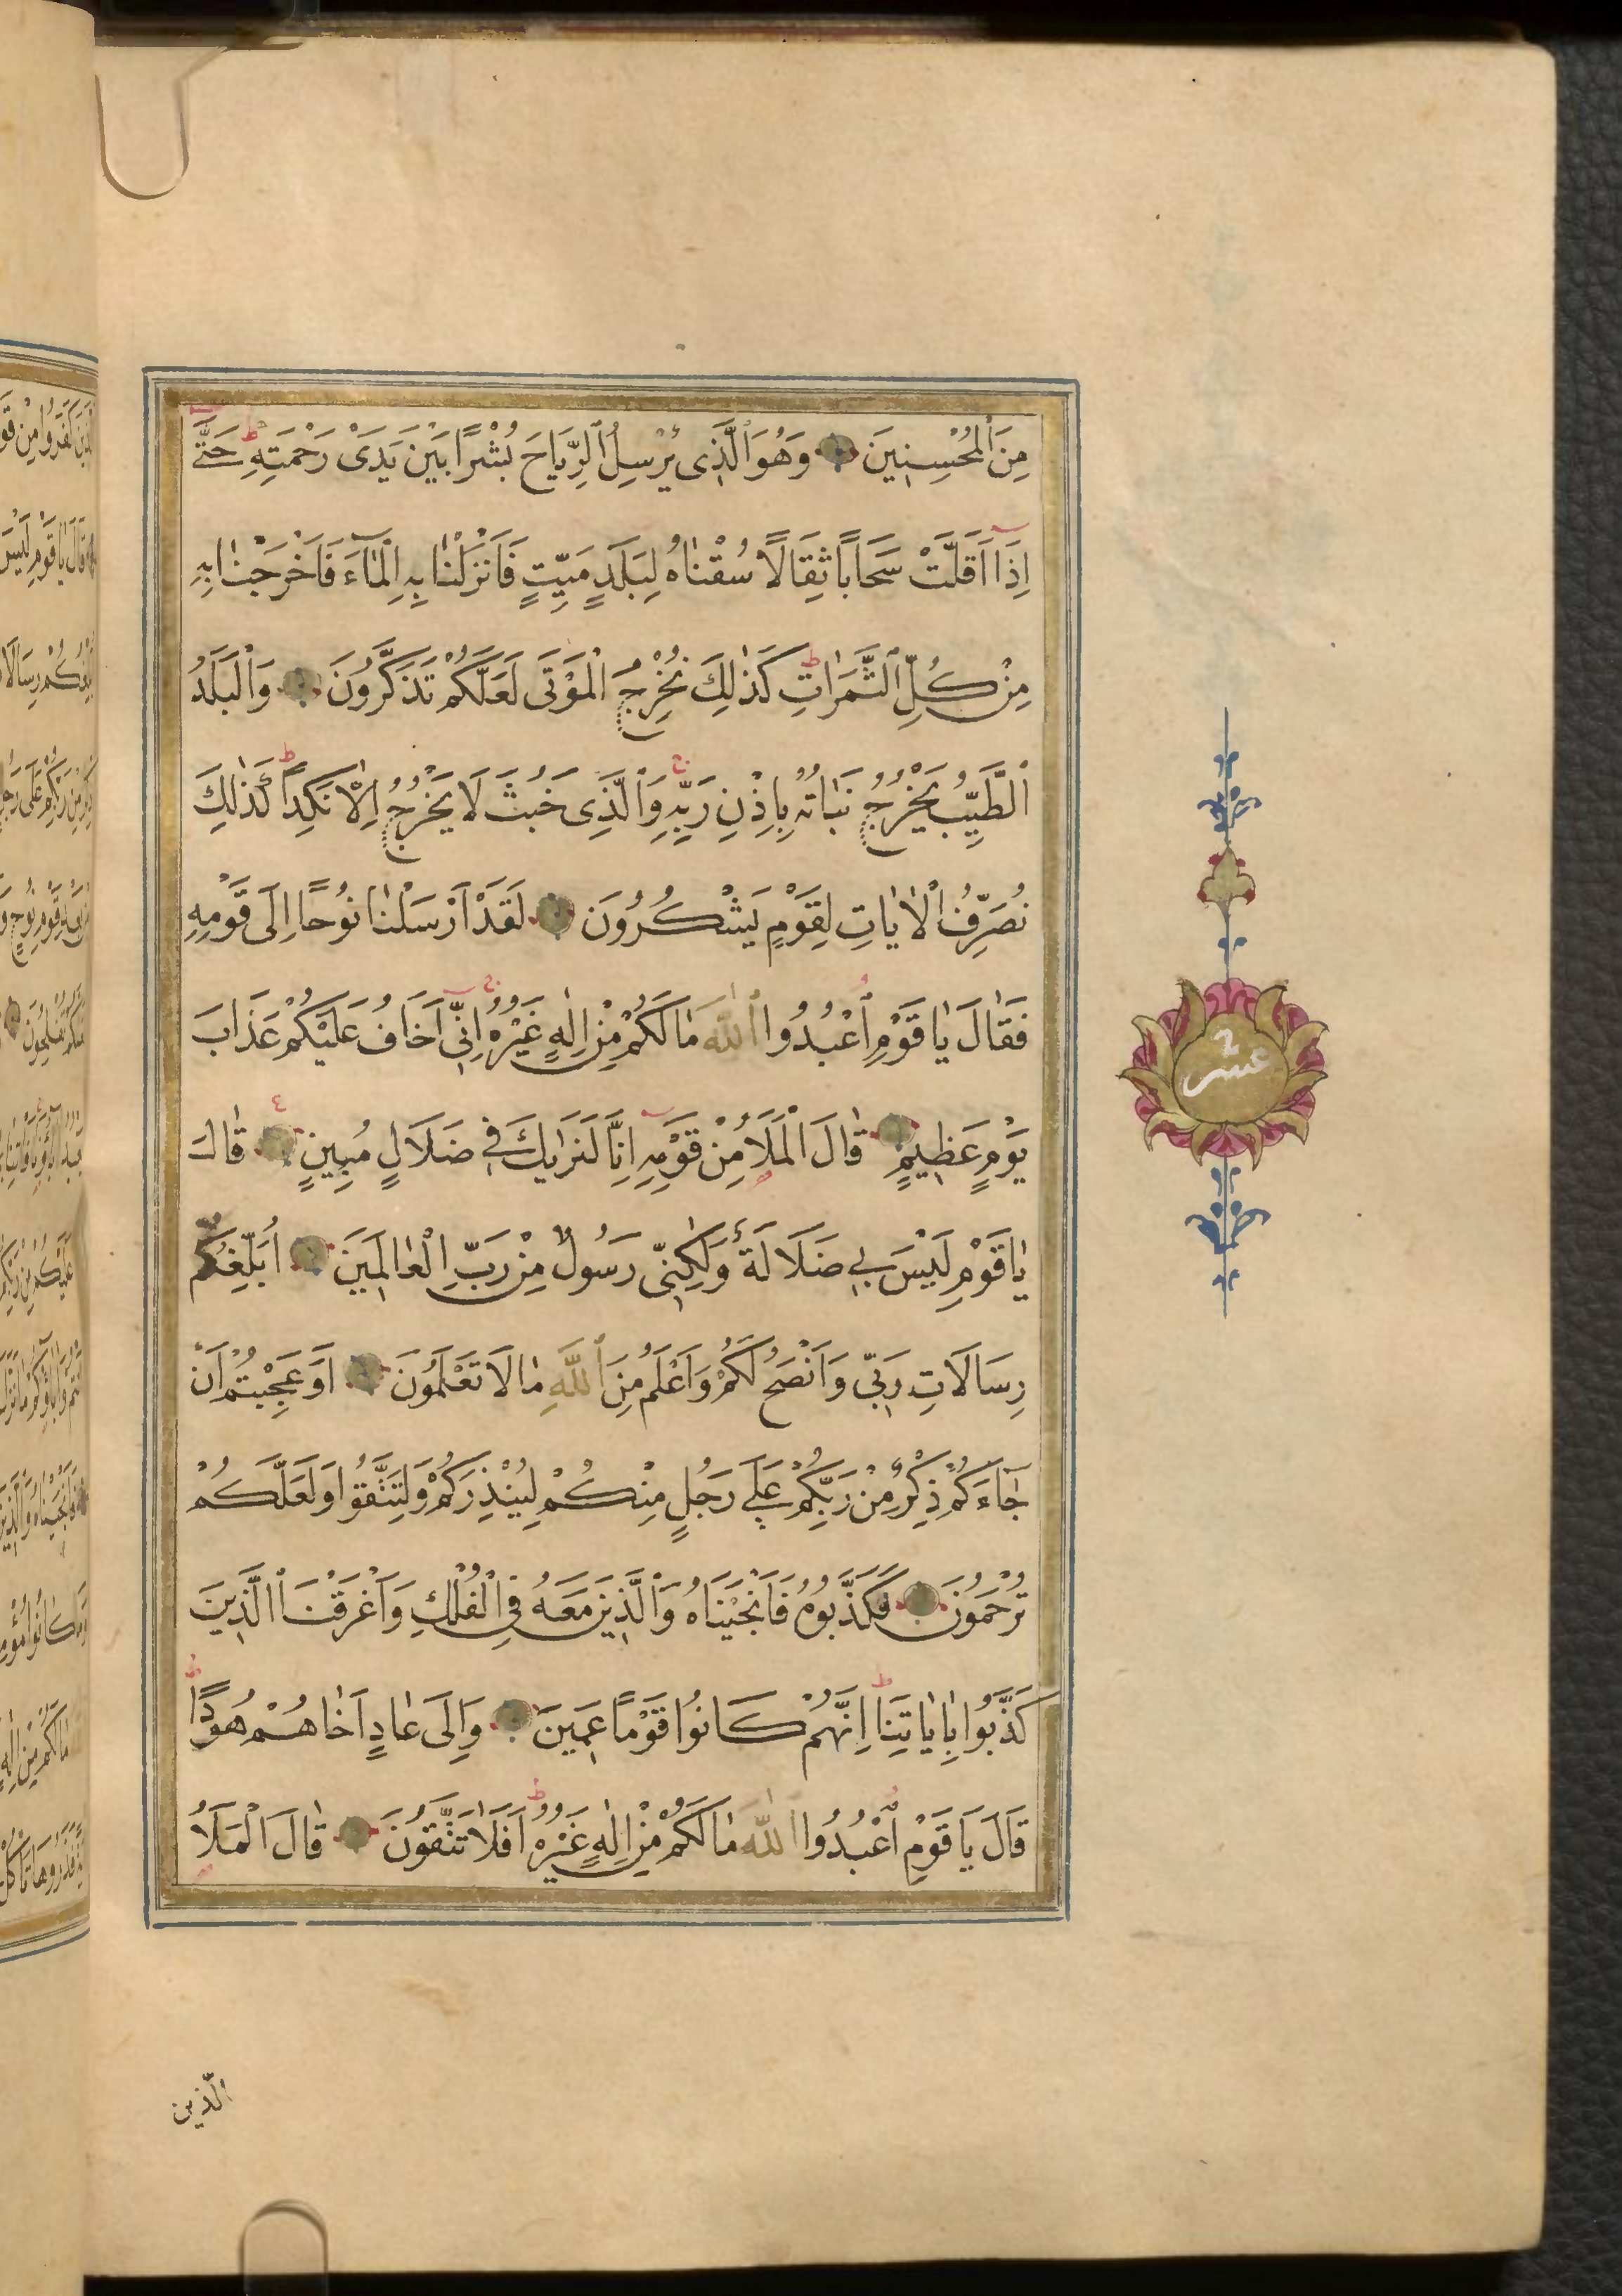 مِنَ ٱلْمُحْسِنِينَ وَهُوَ ٱلَّذِى يُرْسِلُ ٱلرِّيَاحَ بُشْرًا بَيْنَ يَدَىْ رَحْمَتِهِ حَتَّى
اِذَا اَقَلَّتْ سَحَابًا ثِقَالًا سُقْنَاهُ لِبَلَدٍ مَيِّتٍ فَاَنْزَلْنَا بِهِ الْمَآءَ فَاَخْرَجْنَا بِهِ
مِنْ كُلِّ ٱلثَّمَرَاتِ كَذٰلِكَ نُخْرِجُ الْمَوْتَى لَعَلَّكُمْ تَذَكَّرُونَ وَالْبَلَدُ
ٱلطَّيِّبُ يَخْرُجُ نَبَاتُهُ بِاِذْنِ رَبِّهِ وَٱلَّذِى خَبُثَ لَا يَخْرُجُ اِلَّا نَكِدًا كَذٰلِكَ
نُصَرِّفُ الْاٰيَاتِ لِقَوْمٍ يَشْكُرُونَ لَقَدْ اَرْسَلْنَا نُوحًا اِلَى قَوْمِهِ
فَقَالَ يَا قَوْمِ ٱعْبُدُوا ٱللّٰهَ مَا لَكُمْ مِنْ اِلٰهٍ غَيْرُهُ اِنِّى اَخَافُ عَلَيْكُمْ عَذَابَ
يَوْمٍ عَظِيمٍ قَالَ الْمَلَأُ مِنْ قَوْمِهِ اِنَّا لَنَرٰيكَ فِى ضَلَالٍ مُبِينٍ قَالَ
يَا قَوْمِ لَيْسَ بِى ضَلَالَةٌ وَلٰكِنِّى رَسُولٌ مِنْ رَبِّ الْعَالَمِينَ اُبَلِّغُكُمْ
رِسَالَاتِ رَبِّى وَاَنْصَحُ لَكُمْ وَاَعْلَمُ مِنَ ٱللّٰهِ مَا لَا تَعْلَمُونَ اَوَعَجِبْتُمْ اَنْ
جَآءَكُمْ ذِكْرٌ مِنْ رَبِّكُمْ عَلَى رَجُلٍ مِنْكُمْ لِيُنْذِرَكُمْ وَلِتَتَّقُوا وَلَعَلَّكُمْ
تُرْحَمُونَ فَكَذَّبُوهُ فَاَنْجَيْنَاهُ وَٱلَّذِينَ مَعَهُ فِى الْفُلْكِ وَاَغْرَقْنَا ٱلَّذِينَ
كَذَّبُوا بِاٰيَاتِنَا اِنَّهُمْ كَانُوا قَوْمًا عَمِينَ وَاِلَى عَادٍ اَخَاهُمْ هُودًا
قَالَ يَا قَوْمِ ٱعْبُدُوا ٱللّٰهَ مَا لَكُمْ مِنْ اِلٰهٍ غَيْرُهُ اَفَلَا تَتَّقُونَ قَالَ الْمَلَأُ
الّذين
عشر